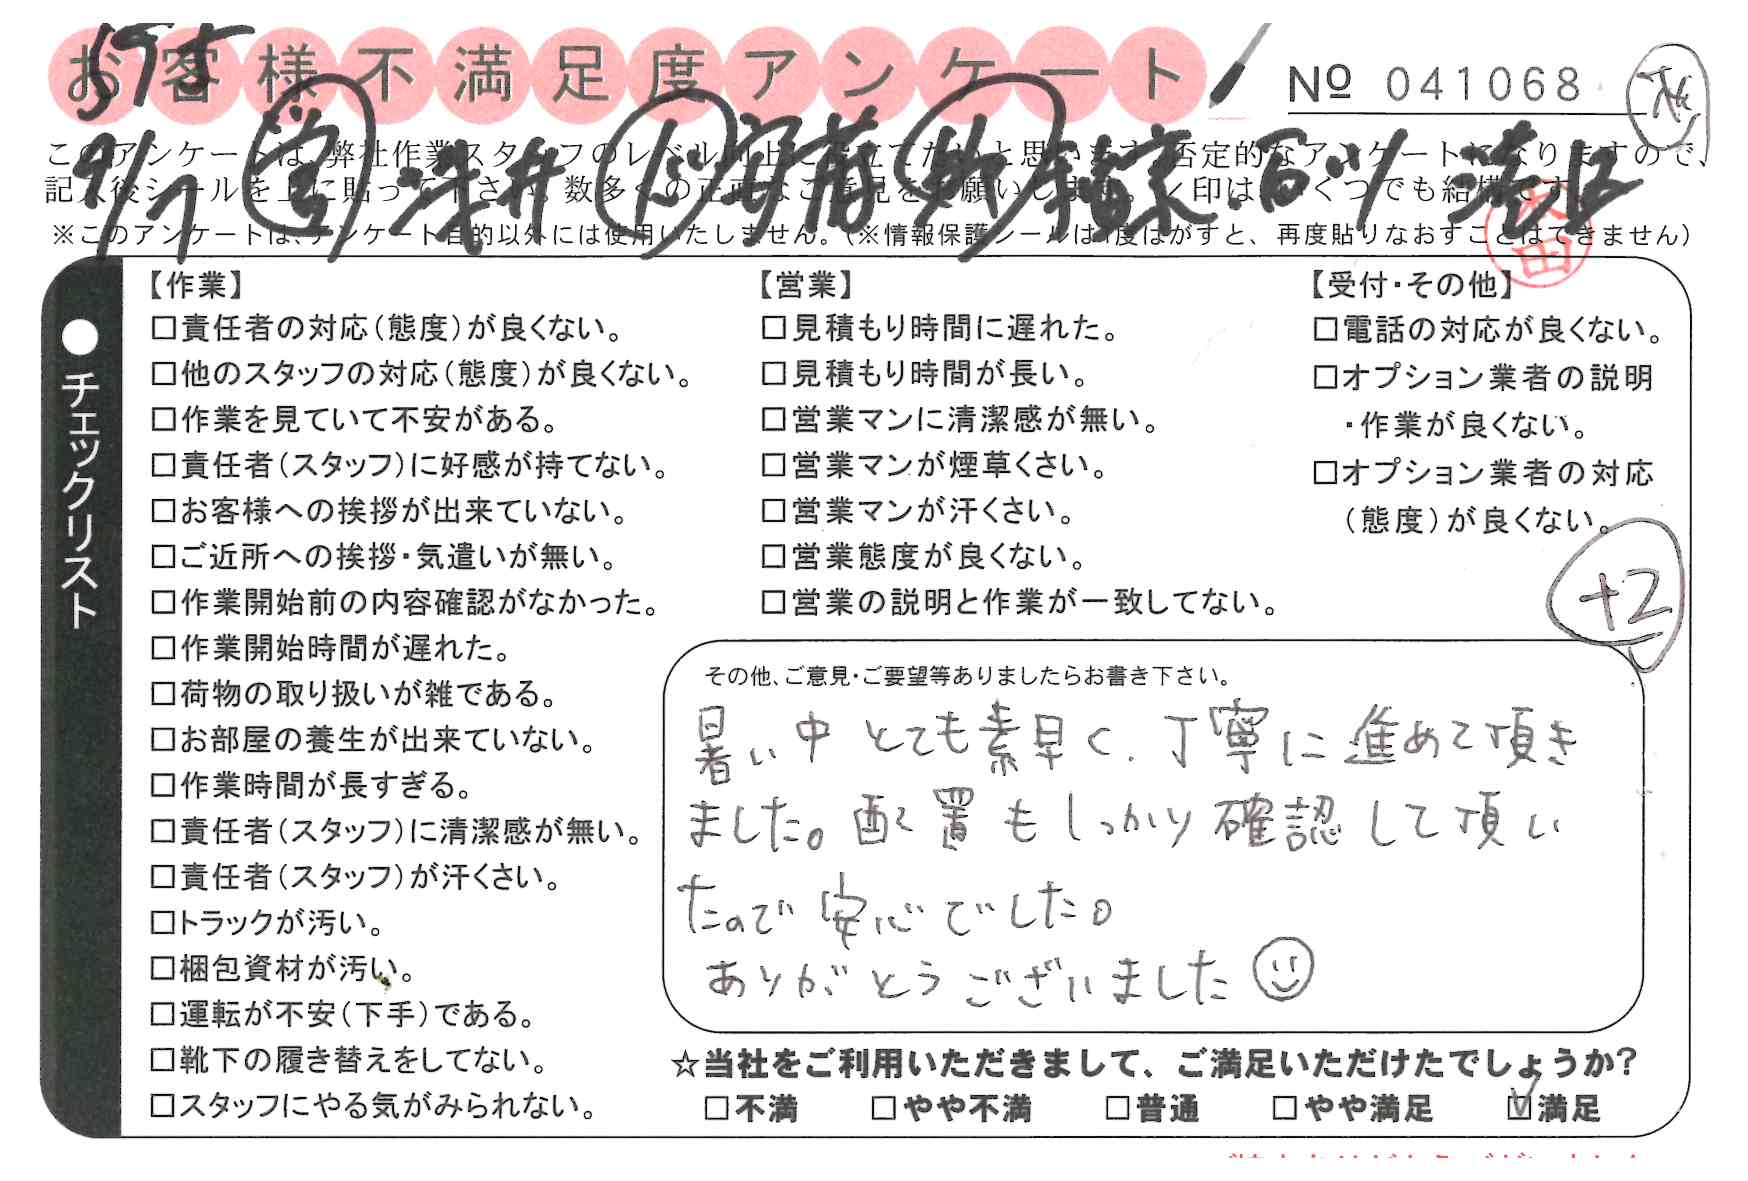 お客様不満足度アンケート
№ 041068
このアンケートは、弊社作業スタッフのレベル向上に役立てたいと思います。否定的なアンケートになりますので、
記入後シールを上に貼って下さい。数多くの正直なご意見をお願いします。レ印はいくつでも結構です。
※このアンケートは、アンケート目的以外には使用いたしません。(※情報保護シールは1度はがすと、再度貼りなおすことはできません)
9/7 営 浅井
●チェックリスト
【作業】
□責任者の対応(態度)が良くない。
□他のスタッフの対応(態度)が良くない。
□作業を見ていて不安がある。
□責任者(スタッフ)に好感が持てない。
□お客様への挨拶が出来ていない。
□ご近所への挨拶・気遣いが無い。
□作業開始前の内容確認がなかった。
□作業開始時間が遅れた。
□荷物の取り扱いが雑である。
□お部屋の養生が出来ていない。
□作業時間が長すぎる。
□責任者(スタッフ)に清潔感が無い。
□責任者(スタッフ)が汗くさい。
□トラックが汚い。
□梱包資材が汚い。
□運転が不安(下手)である。
□靴下の履き替えをしてない。
□スタッフにやる気がみられない。
【営業】
□見積もり時間に遅れた。
□見積もり時間が長い。
□営業マンに清潔感が無い。
□営業マンが煙草くさい。
□営業マンが汗くさい。
□営業態度が良くない。
□営業の説明と作業が一致してない。
【受付・その他】
□電話の対応が良くない。
□オプション業者の説明
・作業が良くない。
□オプション業者の対応
(態度)が良くない。
+2
その他、ご意見・ご要望等ありましたらお書き下さい。
暑い中 とても素早く、丁寧に進めて頂き
ました。配置もしっかり確認して頂い
たので安心でした。
ありがとうございました
☆当社をご利用いただきまして、ご満足いただけたでしょうか?
□不満 □やや不満 □普通 □やや満足 ☑満足